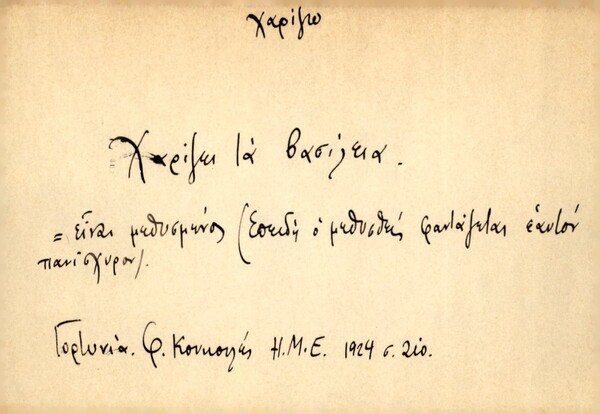 χαρίζω
Χαρίζει τὰ βασίλεια.
= εἶναι μεθυσμένος (Ἐπειδὴ ὁ μεθυσθεὶς φαντάζεται ἑαυτὸν
πανίσχυρον).
Γορτυνία. Φ. Κουκουλὲς Η.Μ.Ε. 1924 σ. 210.